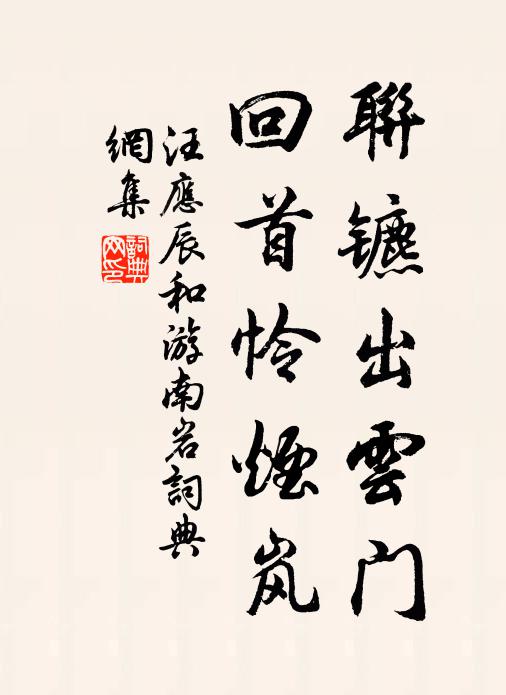 聯镳出雲门
回首怜煙岚
汪應辰和游南岩詞典
網集
詞典
网印